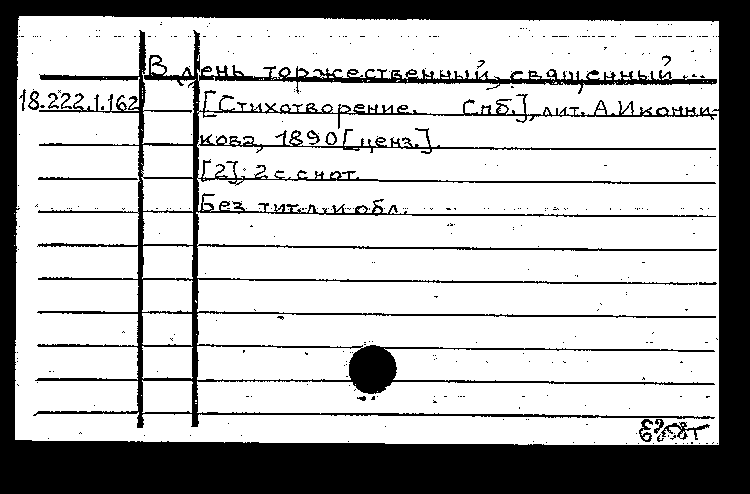 В день торжественный, священный ...
18.222.1.162 [Стихотворение. Спб.], лит. А.Иконни-
кова, 1890 [ценз.].
[2]; 2 с. с нот.
Без тит.л. и обл.